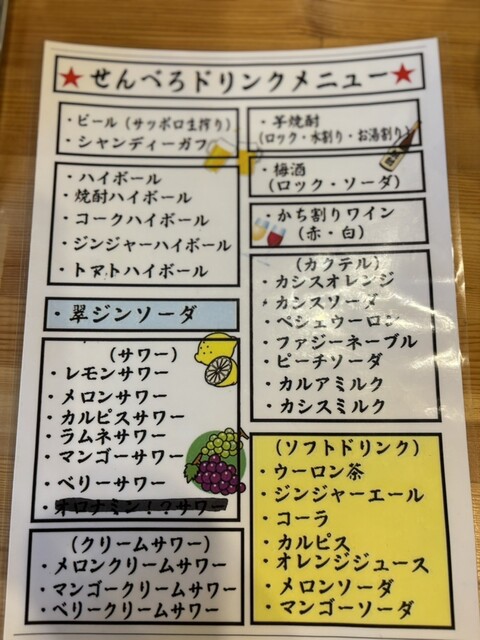 ★せんべろドリンクメニュー★
・ビール(サッポロ生搾り)
・シャンディーガフ
・ハイボール
・焼酎ハイボール
・コークハイボール
・ジンジャーハイボール
・トマトハイボール
・翠ジンソーダ
(サワー)
・レモンサワー
・メロンサワー
・カルピスサワー
・ラムネサワー
・マンゴーサワー
・ベリーサワー
・オロナミン!?サワー
(クリームサワー)
・メロンクリームサワー
・マンゴークリームサワー
・ベリークリームサワー
・芋焼酎
(ロック・水割り・お湯割り)
・梅酒
(ロック・ソーダ)
・かち割りワイン
(赤・白)
(カクテル)
・カシスオレンジ
・カシスソーダ
・ペシェウーロン
・ファジーネーブル
・ピーチソーダ
・カルアミルク
・カシスミルク
(ソフトドリンク)
・ウーロン茶
・ジンジャーエール
・コーラ
・カルピス
・オレンジジュース
・メロンソーダ
・マンゴーソーダ